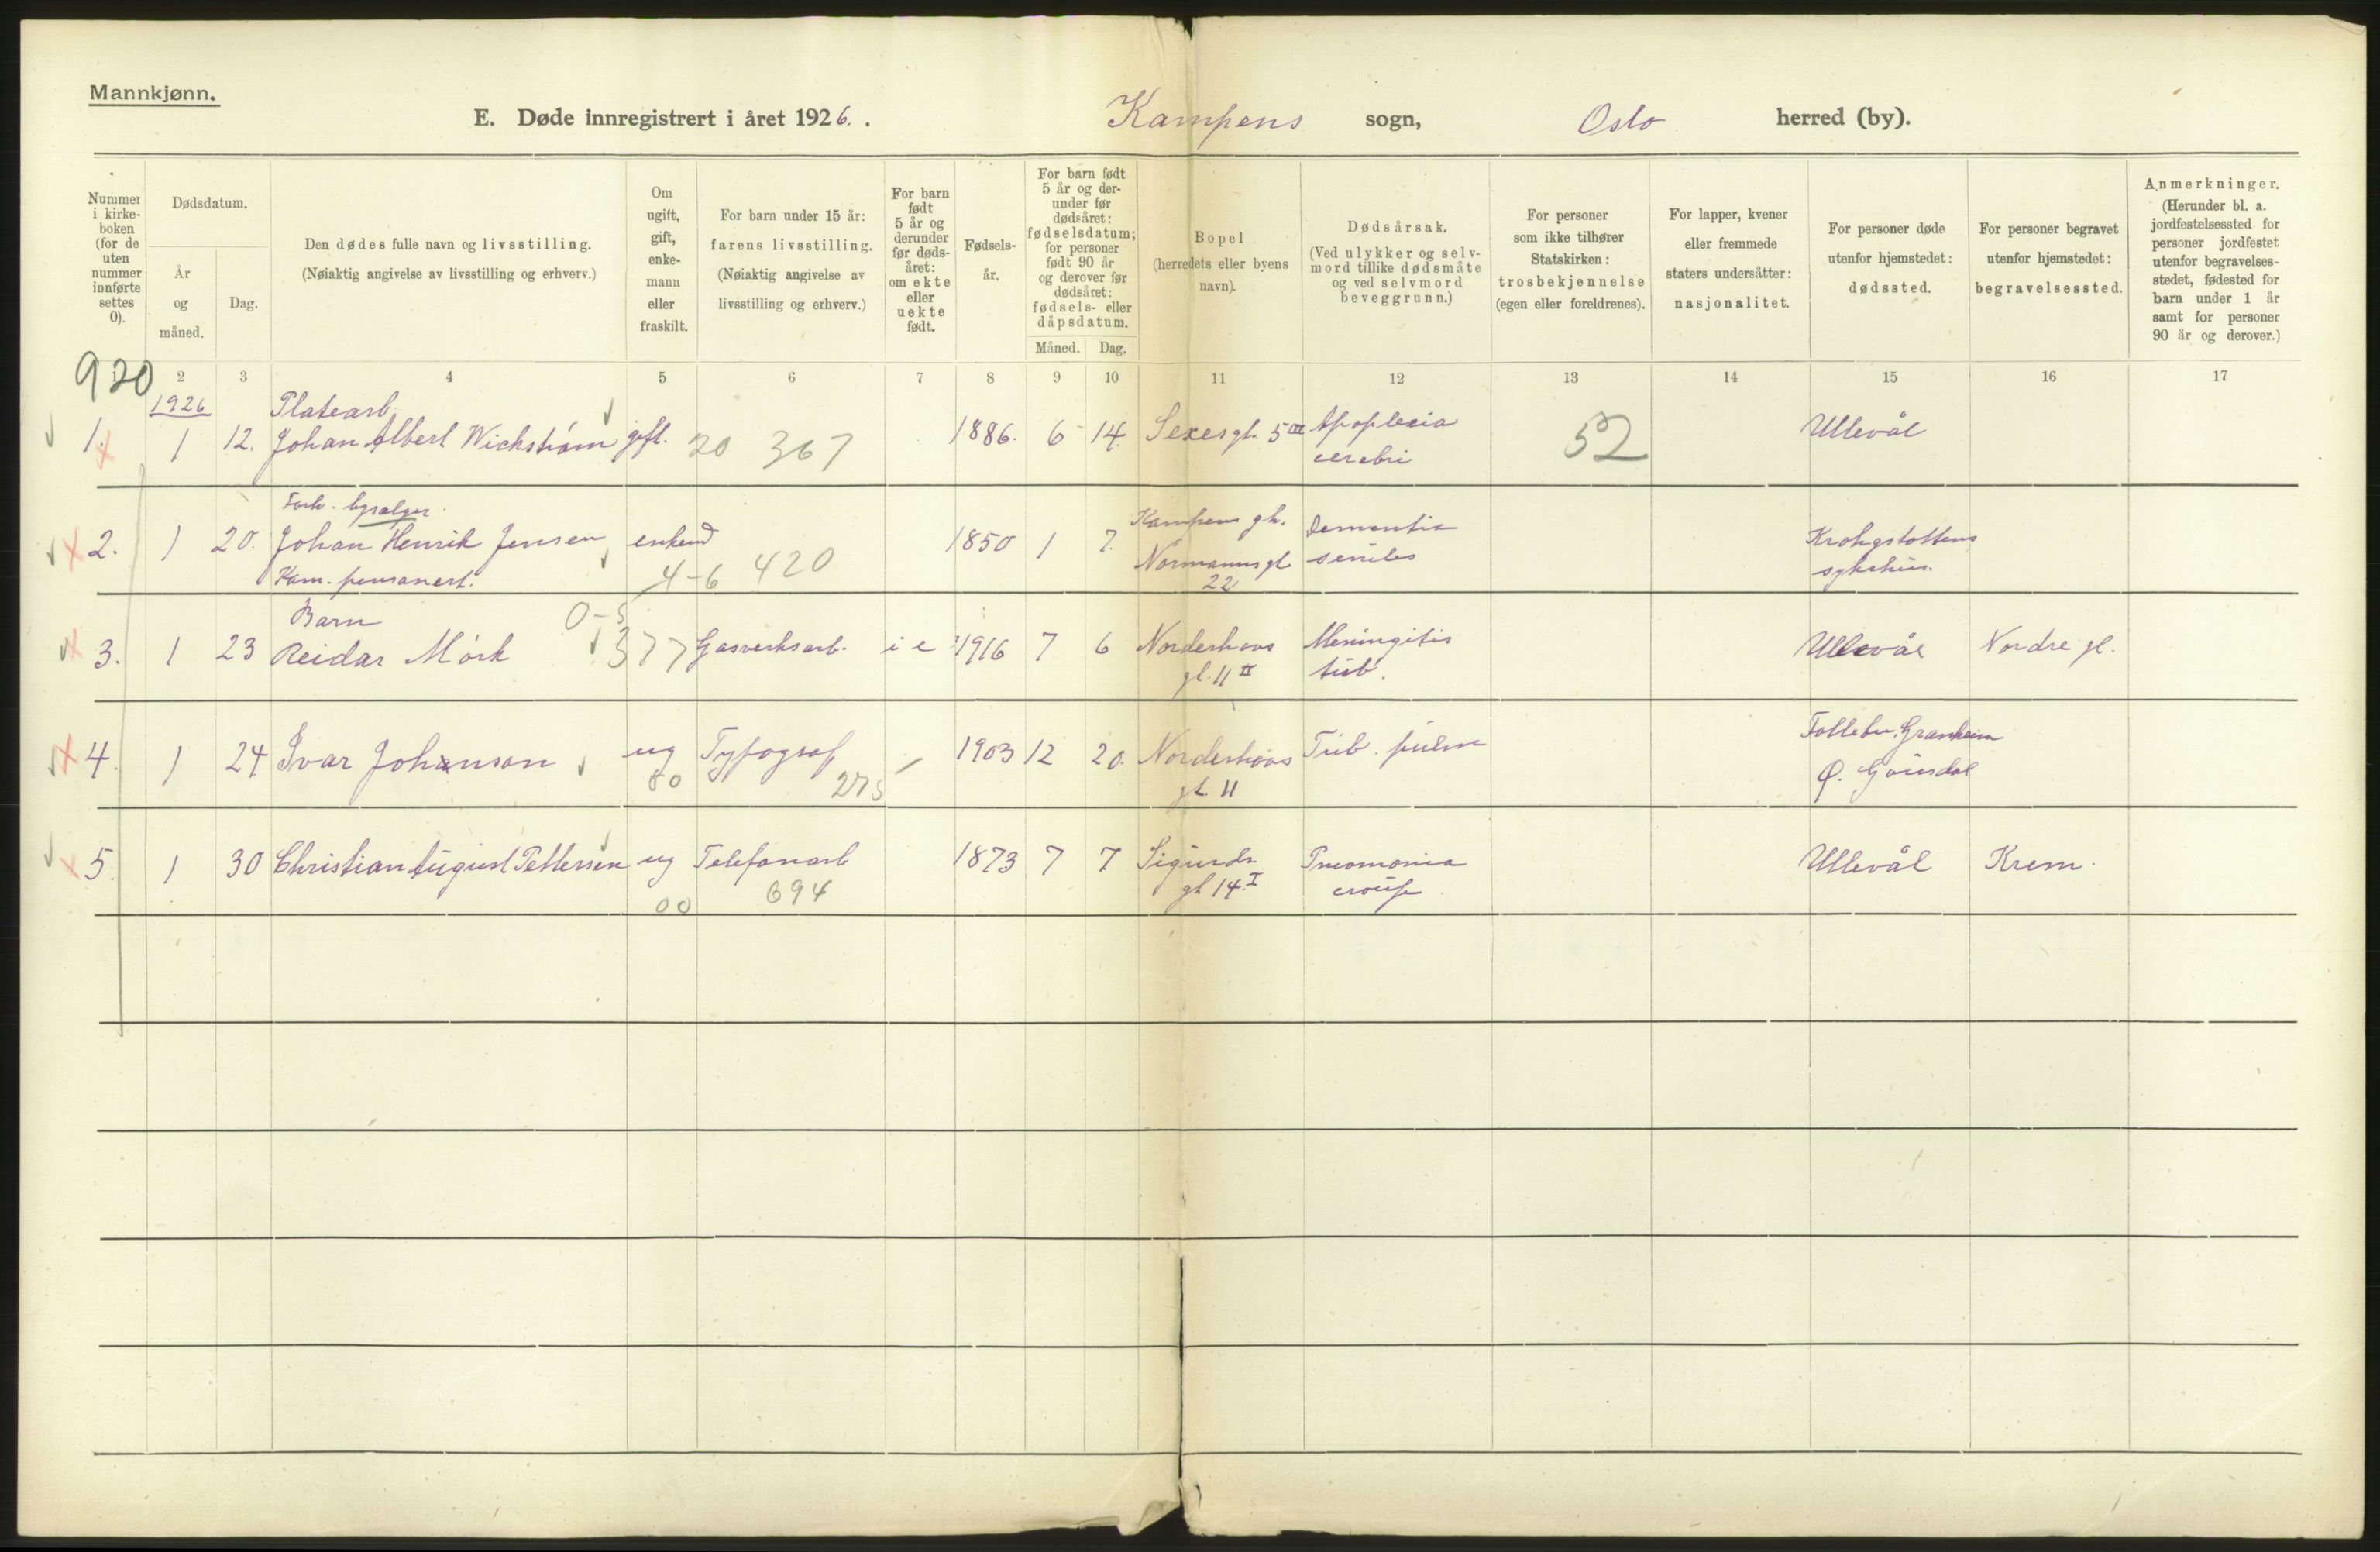 Mannkjønn.
E. Døde innregistrert i året 1926. . Kampens sogn, Oslo herred (by).
Nummer i kirkeboken (for de uten nummer innførte settes 0).
Dødsdatum.
År og måned.
Dag.
Den dødes fulle navn og livsstilling.
(Nøiaktig angivelse av livsstilling og erhverv.)
Om ugift, gift, enkemann eller fraskilt.
For barn under 15 år: farens livsstilling.
(Nøiaktig angivelse av livsstilling og erhverv.)
For barn født 5 år og derunder før dødsåret: om ekte eller uekte født.
Fødselsår.
For barn født 5 år og derunder før dødsåret: fødselsdatum; for personer født 90 år og derover før dødsåret: fødsels- eller dåpsdatum.
Måned. Dag.
Bopel (herredets eller byens navn).
Dødsårsak.
(Ved ulykker og selvmord tillike dødsmåte og ved selvmord beveggrunn.)
For personer som ikke tilhører Statskirken: trosbekjennelse (egen eller foreldrenes).
For lapper, kvener eller fremmede staters undersåtter: nasjonalitet.
For personer døde utenfor hjemstedet: dødssted.
For personer begravet utenfor hjemstedet: begravelsessted.
Anmerkninger.
(Herunder bl. a. jordfestelsessted for personer jordfestet utenfor begravelsesstedet, fødested for barn under 1 år samt for personer 90 år og derover.)
920 2 3 4 5 6 7 8 9 10 11 12 13 14 15 16 17
1926 Platearb.
1. 1 12. Johan Albert Wickstrøm gift. 20 367 1886. 6 14. Sexesgt. 5 III Apoplexia cerebri 52 Ullevål
Forh.
2. 1 20. Johan Henrik Jensen enkem 4-6 420 1850 1 7. Kampens gh. Normannsgt. 22 Dementia seniles Krohgstøttens sykehus.
Kom. pensionert.
Barn 0-5
3. 1 23 Reidar Mørk 377 Gasverksarb. i e 1916 7 6 Norderhovs gt. 11 II Meningitis tub. Ullevål Nordre gl.
4. 1 24 Ivar Johanson ug 00 Typograf 275 1903 12 20. Norderhovs gt. 11 Tub. pulm Follebu, Granheim Ø. Gausdal
5. 1 30 Christian August Pettersen ug 00 Telefonarb 694 1873 7 7 Sigurds gt 14 I Pneomonia croup. Ullevål Krem.